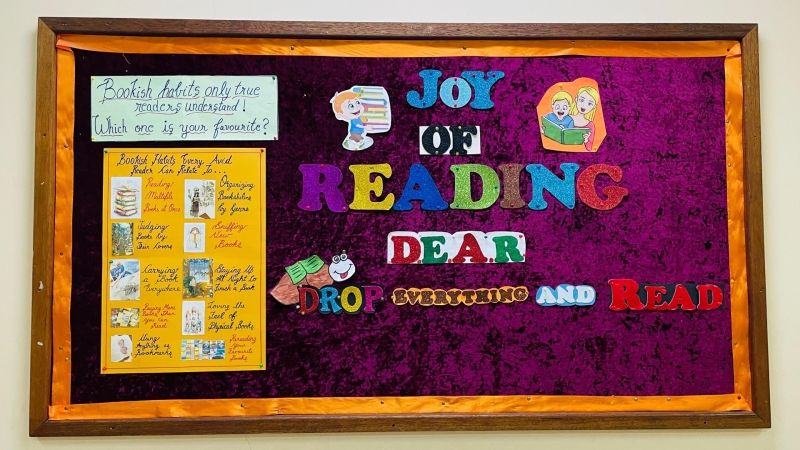 Bookish habits only true
readers understand!
Which one is your favourite?
Bookish Habits Every Avid
Reader Can Relate To...
Reading
Multiple
Books at Once
Organizing
Bookshelves
by Genre
Judging
Books by
Their Covers
Sniffing
New
Books
Carrying
a Book
Everywhere
Staying Up
All Night to
Finish a Book
Buying More
Books Than
You Can
Read
Loving the
Feel of
Physical Books
Using
Anything as
Bookmarks
Rereading
Your
Favourite
Books
JOY
OF
READING
DEAR
DROP EVERYTHING AND READ